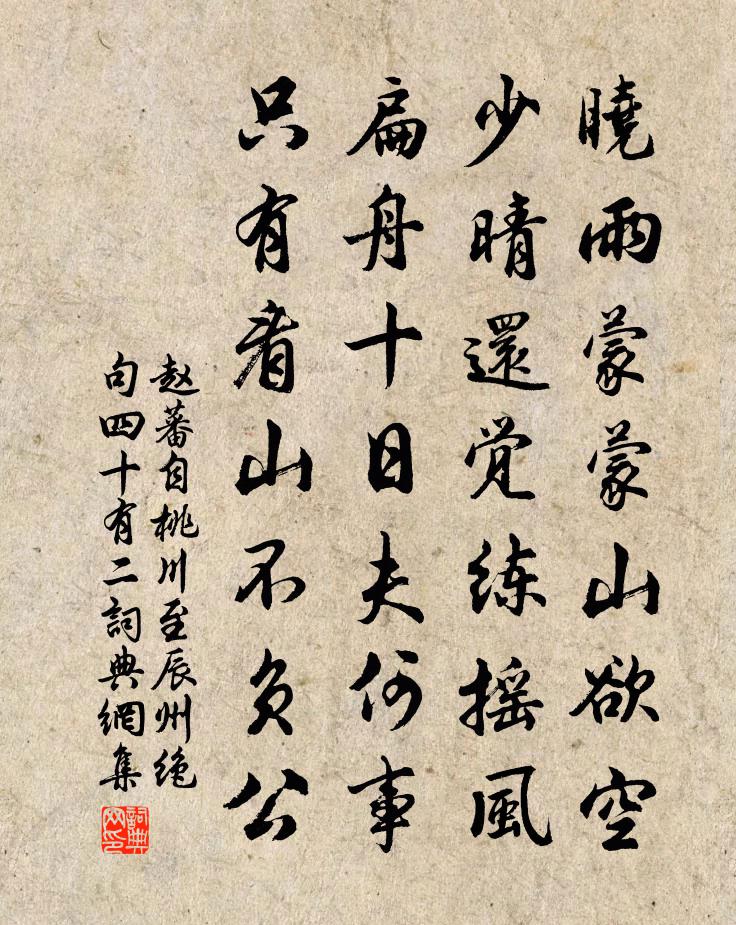 曉雨蒙蒙山欲空
少晴還覚練揺風
扁舟十日夫何事
只有看山不负公
赵蕃自桃川至辰州绝
句四十有二詞典網集
詞典
网印